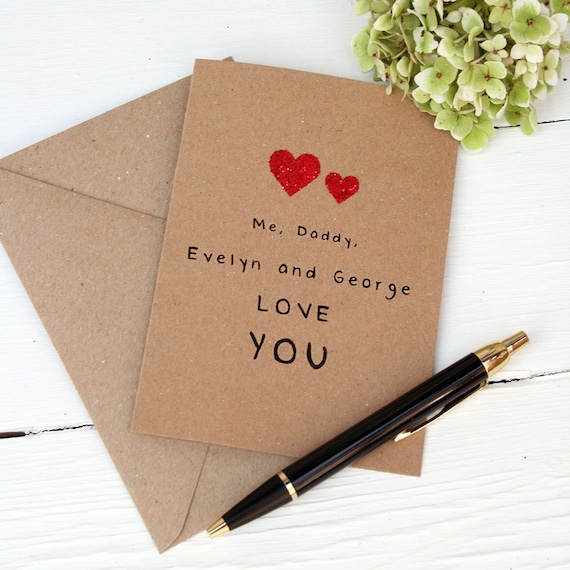 Me, Daddy,
Evelyn and George
LOVE
YOU